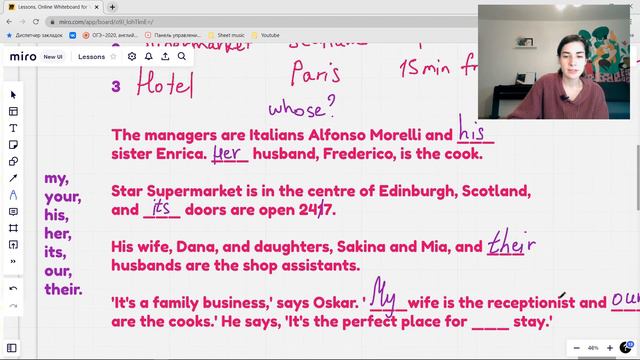 Lessons, Online Whiteboard for
miro.com/app/board/o9J_lohTknE=/
Диспетчер закладок
ОГЭ–2020, англий...
Панель управлени...
Sheet music
Youtube
miro
New UI
Lessons
Scotland
3 Hotel Paris 15 min fr
whose?
The managers are Italians Alfonso Morelli and his
sister Enrica. Her husband, Frederico, is the cook.
Star Supermarket is in the centre of Edinburgh, Scotland,
and its doors are open 24/7.
His wife, Dana, and daughters, Sakina and Mia, and their
husbands are the shop assistants.
'It's a family business,' says Oskar. ' My wife is the receptionist and our
are the cooks.' He says, 'It's the perfect place for ___ stay.'
my,
your,
his,
her,
its,
our,
their.
46%